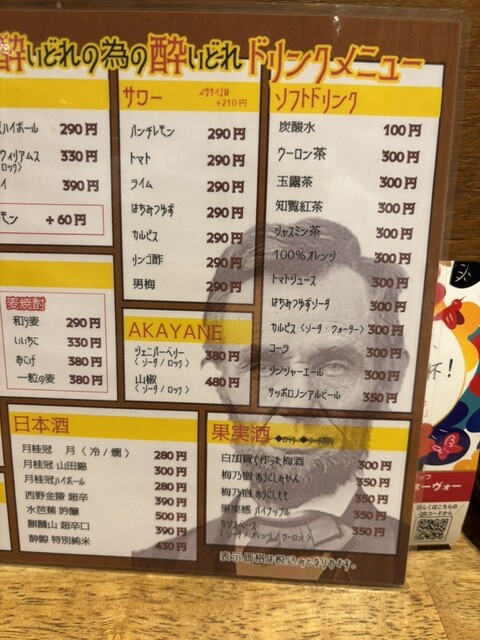 酔いどれの為の酔いどれドリンクメニュー
ハイボール 290円
ウィリアムス 330円
ロック〉
390円
モン +60円
麦焼酎
和ら麦 290円
いいちこ 330円
380円
一粒の麦 380円
サワー メガサイズは +210円
パンチレモン 290円
トマト 290円
ライム 290円
はちみつゆず 290円
カルピス 290円
リンゴ酢 290円
男梅 290円
AKAYANE
ジュニパーベリー 380円
〈ソーダ / ロック〉
山椒 480円
〈ソーダ / ロック〉
ソフトドリンク
炭酸水 100円
ウーロン茶 300円
玉露茶 300円
知覧紅茶 300円
ジャスミン茶 300円
100%オレンジ 300円
トマトジュース 300円
はちみつゆずソーダ 300円
カルピス〈ソーダ・ウォーター〉 300円
コーラ 300円
ジンジャーエール 300円
サッポロノンアルビール 350円
日本酒
月桂冠 月〈冷 / 燗〉 280円
月桂冠 山田錦 300円
月桂冠ハイボール 280円
西野金陵 超辛 390円
水芭蕉 吟醸 500円
麒麟山 超辛口 390円
酔鯨 特別純米 430円
果実酒 ◆ロック ◆ソーダ割り
白加賀で作った梅酒 300円
梅乃宿 あらごしみかん 350円
梅乃宿 あらごしもも 350円
果実感 パイナップル 350円
カシスベース 350円
〈ソーダ / オレンジ / ウーロン〉
表示価格は税込みとなります。
杯!
ーヴォー
詳しくはこちらの
QRコードから